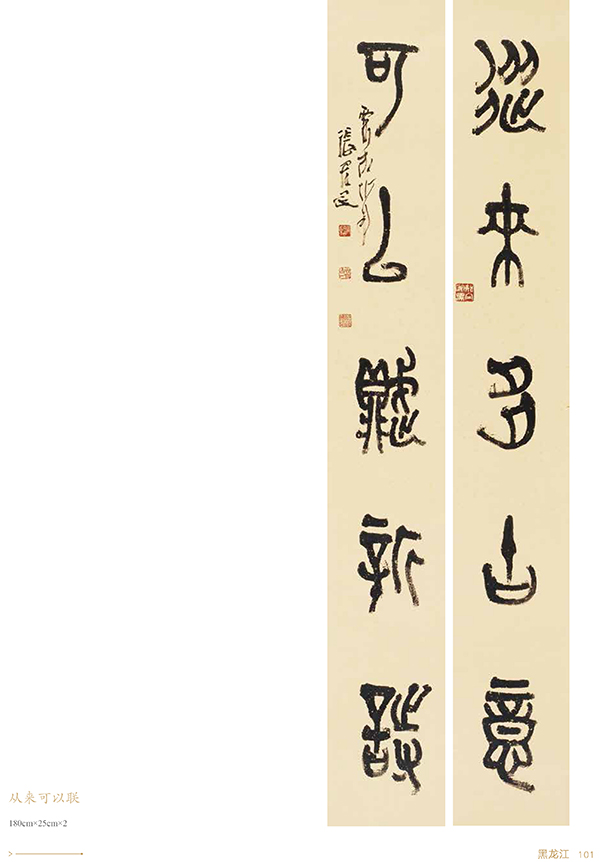 從來多古意
可以賦新詩
从来可以联
180cm×25cm×2
黑龙江 101